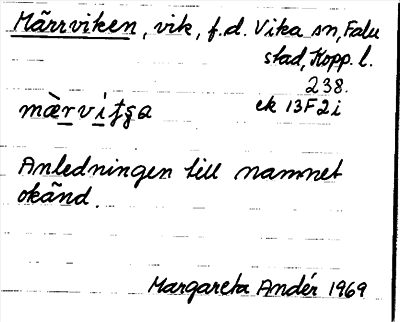 Märrviken, vik, f.d. Vika sn, Falu
stad, Kopp. l.
238.
ek 13F2i
Anledningen till namnet
okänd.
Margareta Andér 1969